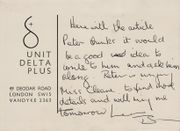 UNIT
DELTA
PLUS
49 DEODAR ROAD
LONDON SW15
VANDYKE 2363
Here with the article
Peter thinks it would
be a good idea to
write to him and ask him
along Peter is
Miss Cleave to find out
details and will ring me
tomorrow